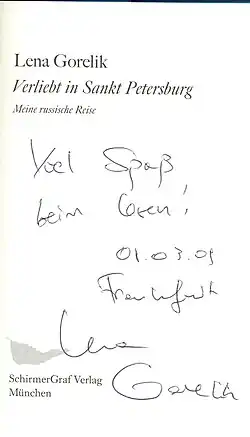 Lena Gorelik
Verliebt in Sankt Petersburg
Meine russische Reise
Viel Spaß
beim Lesen!
01.03.09
Frankfurt
Lena
Gorelik
SchirmerGraf Verlag
München